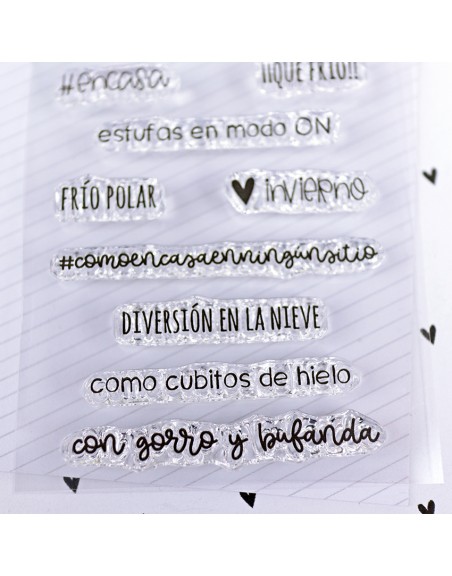 #encasa
¡¡QUÉ FRÍO!!
estufas en modo ON
FRÍO POLAR
inviERno
#comoencasaenningúnsitio
DIVERSIÓN EN LA NIEVE
como cubitos de hielo
con gorro y bufanda